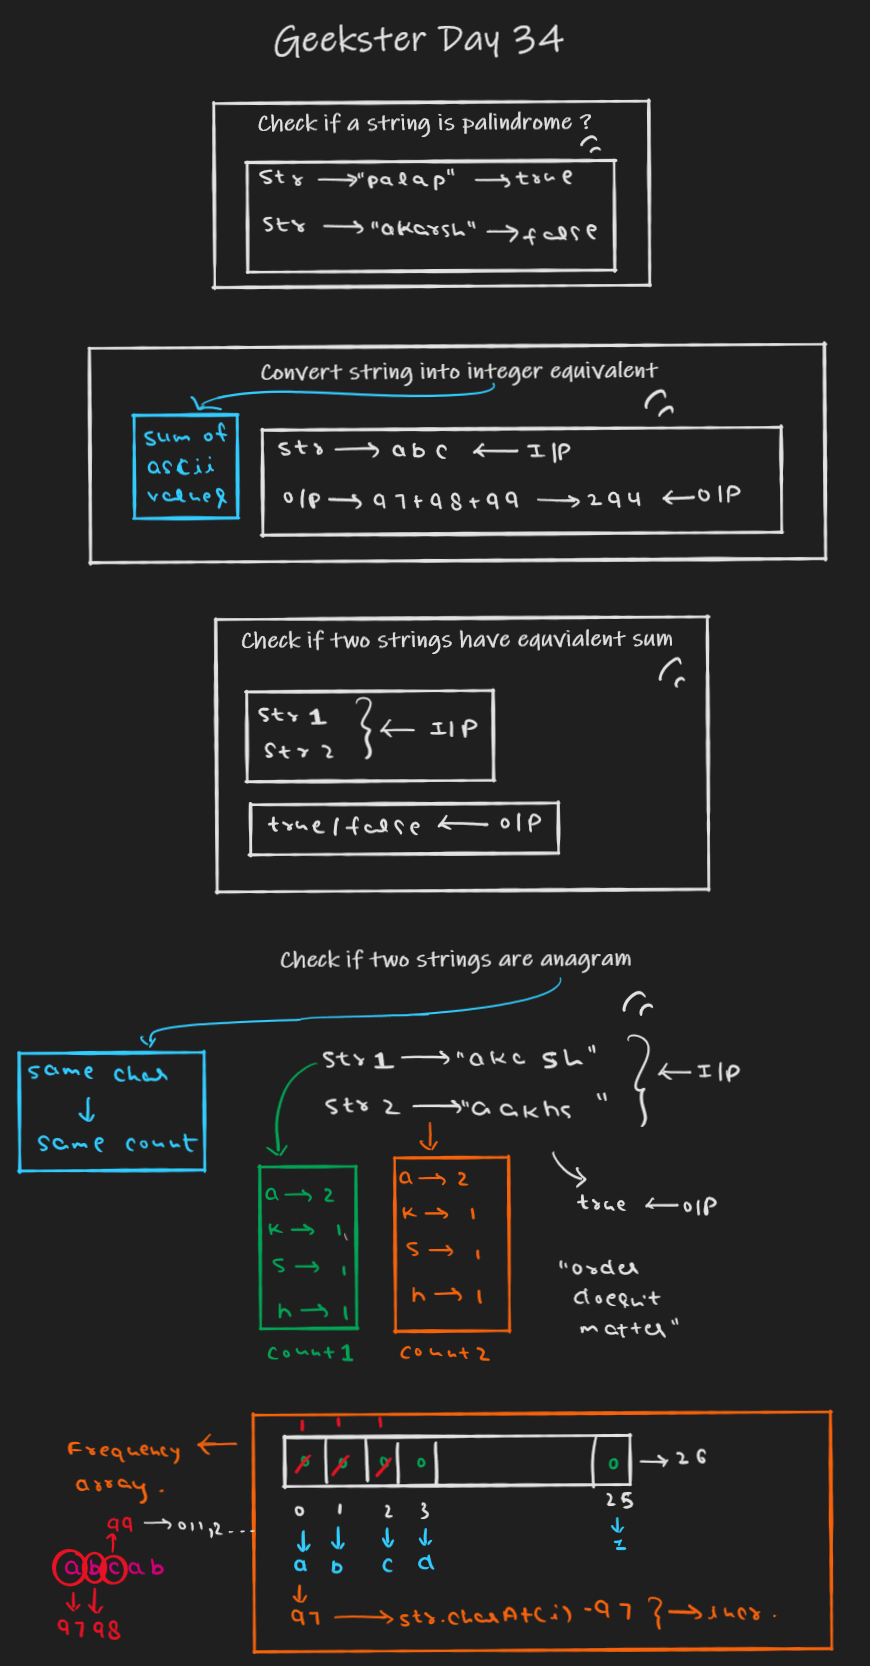 Geekster Day 34
Check if a string is palindrome ?
str → "palap" → true
str → "akarsh" → false
Convert string into integer equivalent
sum of
ascii
values
str → abc ← I/P
O/P → 97+98+99 → 294 ← O/P
Check if two strings have equvialent sum
str 1
str 2
} ← I/P
true/false ← O/P
Check if two strings are anagram
same char
↓
same count
str 1 → "aka sh"
str 2 → "aakhs "
} ← I/P
a → 2
k → 1
s → 1
h → 1
count 1
a → 2
k → 1
s → 1
h → 1
count 2
true ← O/P
"order
doesn't
matter"
Frequency
array.
1 1 1
0 0 0 0 0 → 26
0 1 2 3 25
a b c d z
97 → str.charAt(i) - 97 } → incr.
99 → 0,1,2...
abcab
97 98